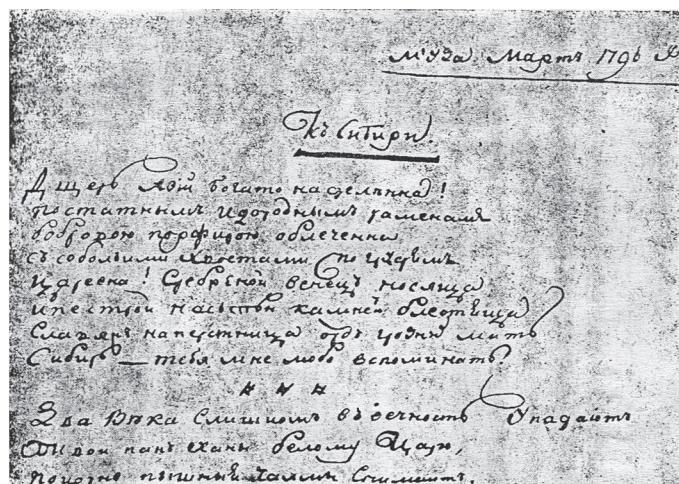 Муза. Мартъ 1796
Къ Сибири.
Дщерь Азiи богато наделѣнна!
по статнымъ и дородным раменамъ
бобровою порфирою облеченна
съ собольими хвостами по грудямъ
Царевна! Сребреной венецъ носяща
и пестрой насыпью камней блестяща
Славянъ наперстница, ордъ мать
Сибирь — тебя мне любо вспоминать?
Два вѣка слишкомъ въ вечность упадаютъ
твои Ханы белому Царю,
пышный